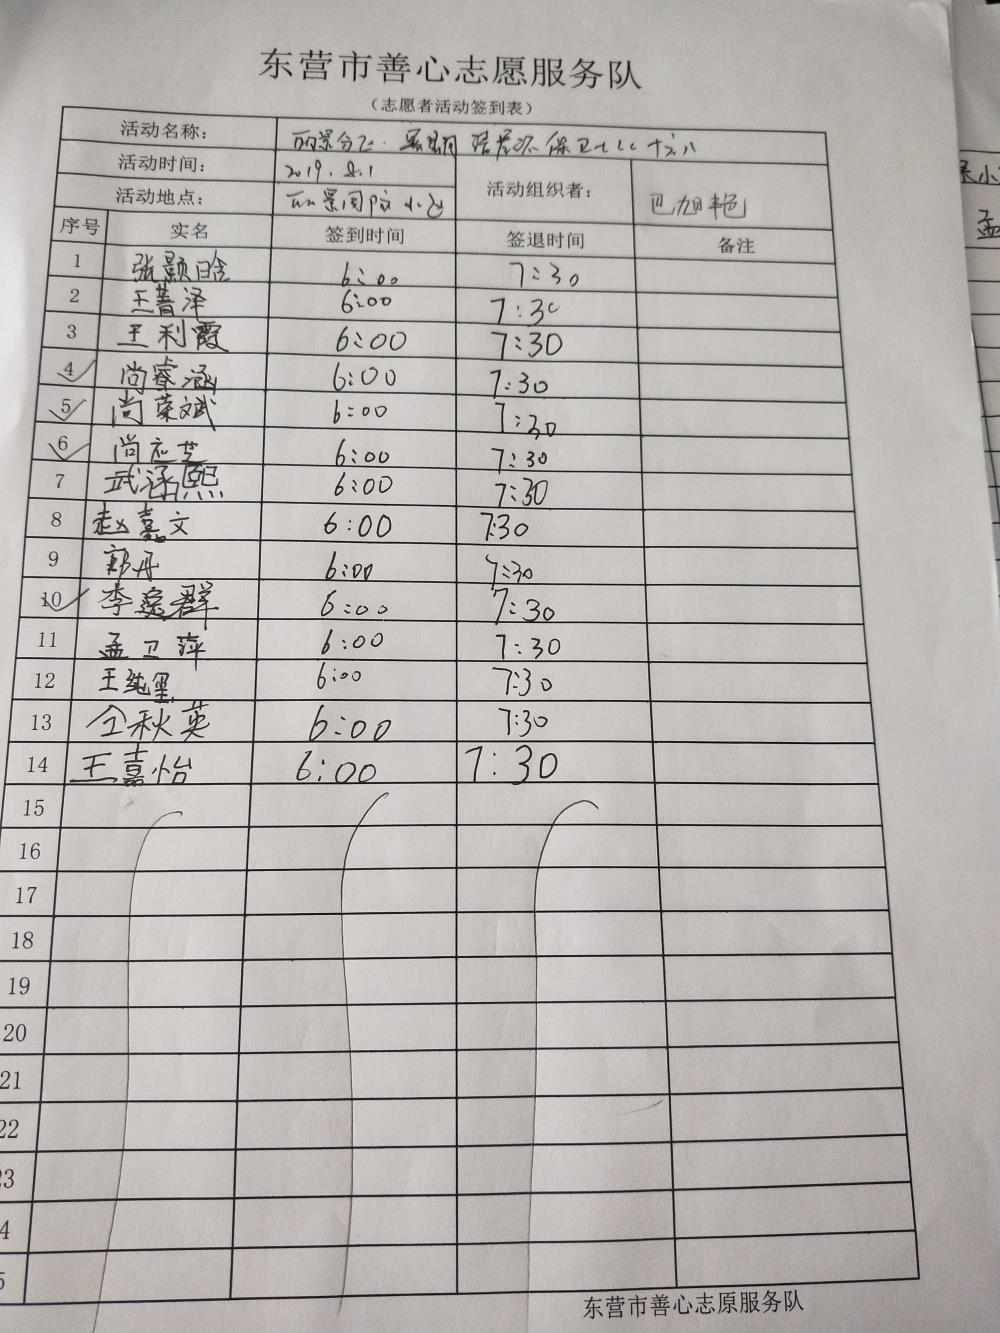 东营市善心志愿服务队
（志愿者活动签到表）
活动名称：
活动时间： 2019.8.1 活动组织者： 巴旭艳
活动地点：
序号 实名 签到时间 签退时间 备注
1 张颢晗 6:00 7:30
2 王菁泽 6:00 7:30
3 王利霞 6:00 7:30
4 尚睿涵 6:00 7:30
5 尚荣斌 6:00 7:30
6 尚 芝 6:00 7:30
7 武涵熙 6:00 7:30
8 赵嘉文 6:00 7:30
9 郭丹 6:00 7:30
10 李逸群 6:00 7:30
11 孟卫萍 6:00 7:30
12 王纯 6:00 7:30
13 仝秋英 6:00 7:30
14 王嘉怡 6:00 7:30
15
16
17
18
19
20
21
22
23
4
5
东营市善心志原服务队
小
孟